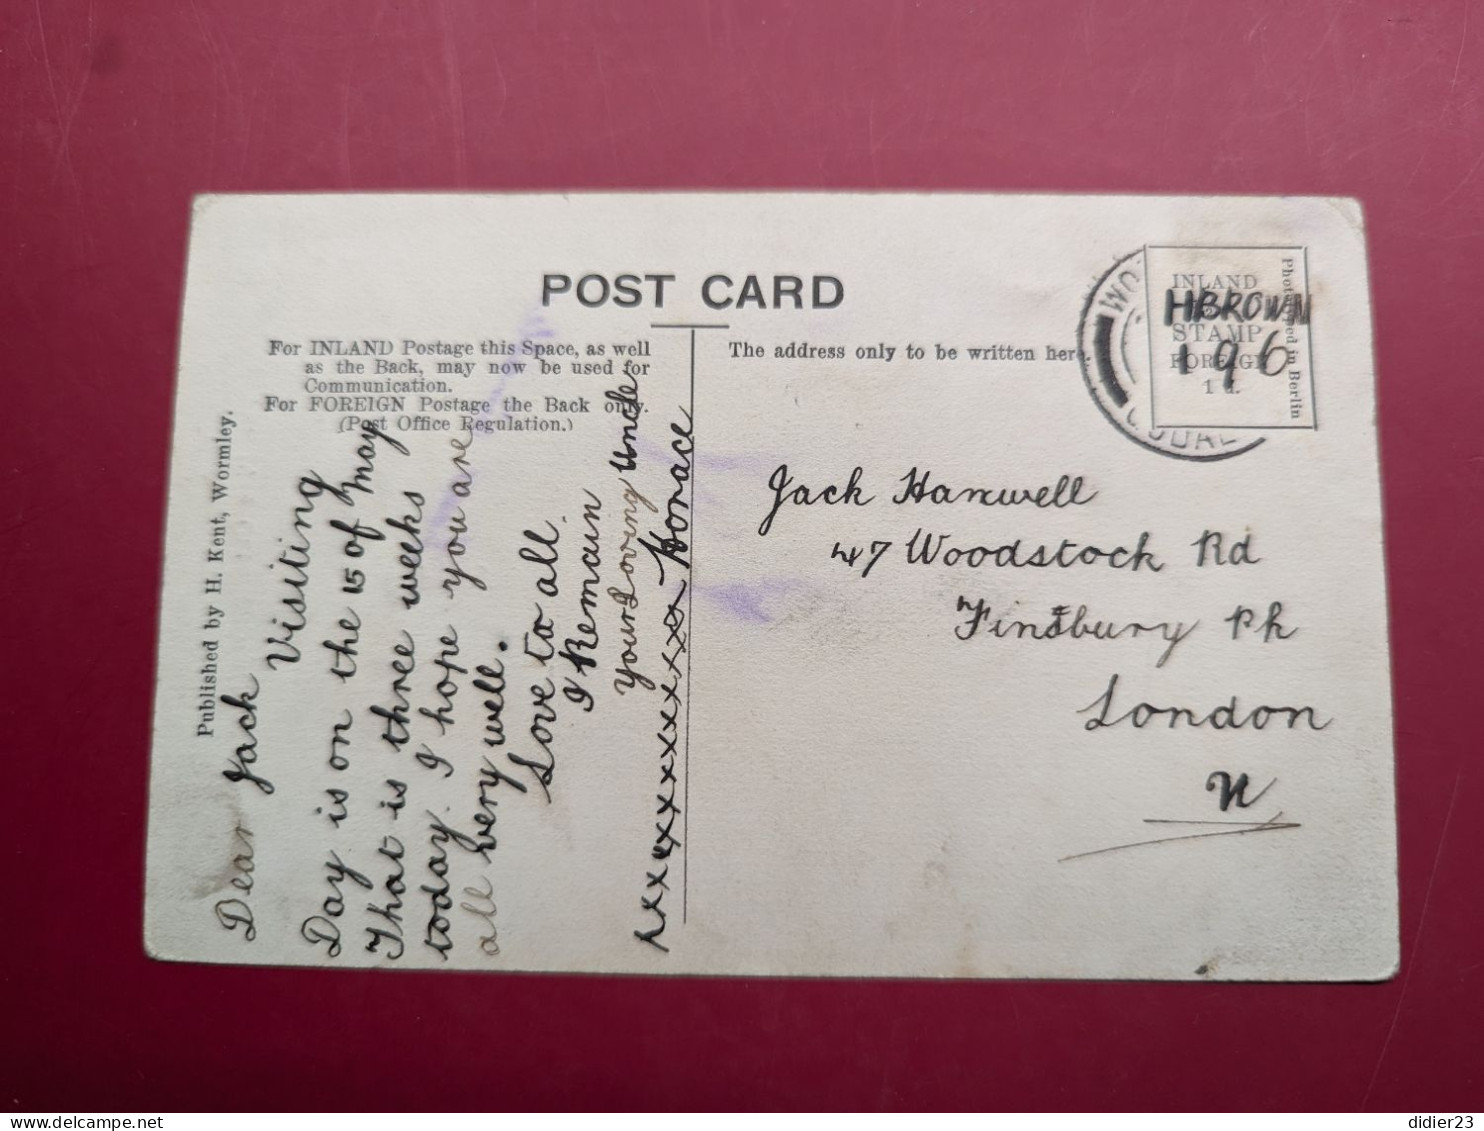 POST CARD
For INLAND Postage this Space, as well
as the Back, may now be used for
Communication.
For FOREIGN Postage the Back only.
(Post Office Regulation.)
The address only to be written here
Published by H. Kent, Wormley.
INLAND
STAMP
FOREIGN
1 d.
in Berlin
HBROWN
196
Dear Jack
Visiting
Day is on the 15 of may
That is three weeks
today. I hope you are
all very well.
Love to all.
I Remain
your Loving Uncle
Horace
Jack Hamwell
47 Woodstock Rd
Finsbury Pk
London
N
didier23